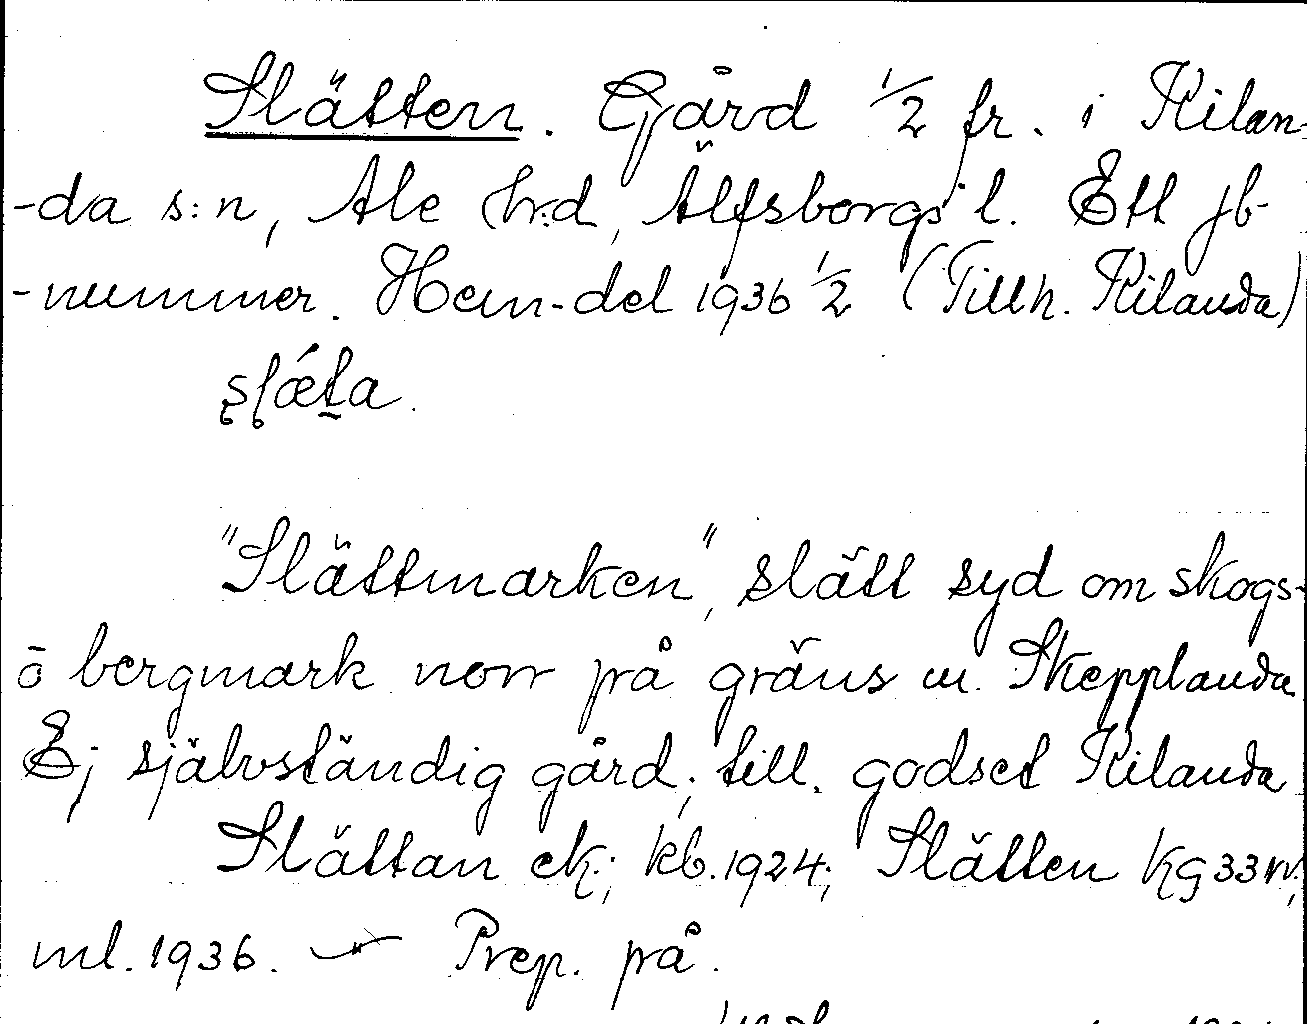 Slätten. Gård 1/2 fr. i Kilan-
-da s:n, Ale hrd, Älfsborgs l. Ett jb-
-nummer. Hem-del 1936 1/2 (Tillh. Kilanda)
"Slättmarken", slätt syd om skogs-
o bergmark norr på gräns m. Skepplanda
Ej självständig gård; till. godset Kilanda
Slättan ek; kb. 1924; Slätten Kg 33 
ml. 1936. — Prep. på.